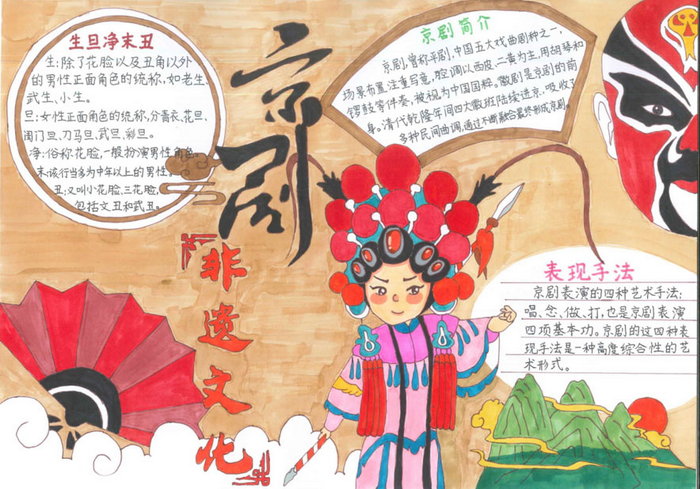 生旦净末丑
生:除了花脸以及丑角以外
的男性正面角色的统称,如老生、
武生、小生。
旦:女性正面角色的统称,分青衣、花旦、
闺门旦、刀马旦、武旦、彩旦。
净:俗称花脸,一般扮演男性角色。
末:该行当多为中年以上的男性,
丑:又叫小花脸、三花脸,
包括文丑和武丑。
京剧
非遗文化
京剧简介
京剧,曾称平剧,中国五大戏曲剧种之一,
场景布置注重写意,腔调以西皮、二黄为主,用胡琴和
锣鼓等伴奏,被视为中国国粹。徽剧是京剧的前
身。清代乾隆年间四大徽班陆续进京,吸收了
多种民间曲调,通过不断融合最终形成京剧。
表现手法
京剧表演的四种艺术手法:
唱、念、做、打,也是京剧表演
四项基本功。京剧的这四种表
现手法是一种高度综合性的艺
术形式。